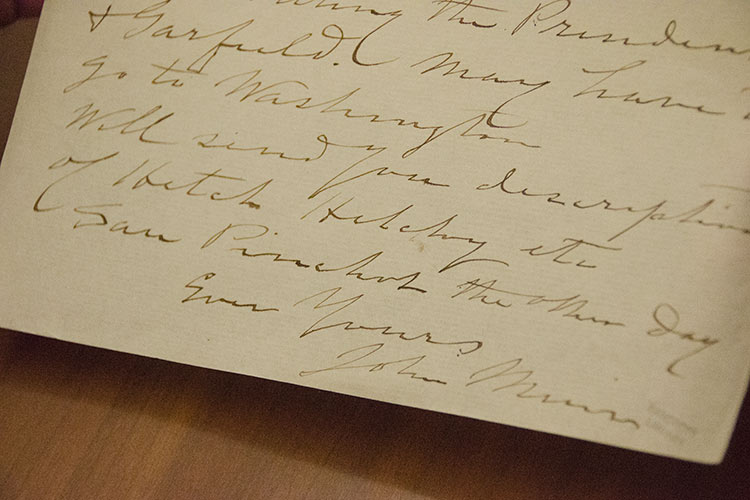 the President
& Garfield. May have
go to Washington
Will send you description
of Hetch Hetchy etc
Saw Pinchot the other day
Ever Yours
John Muir